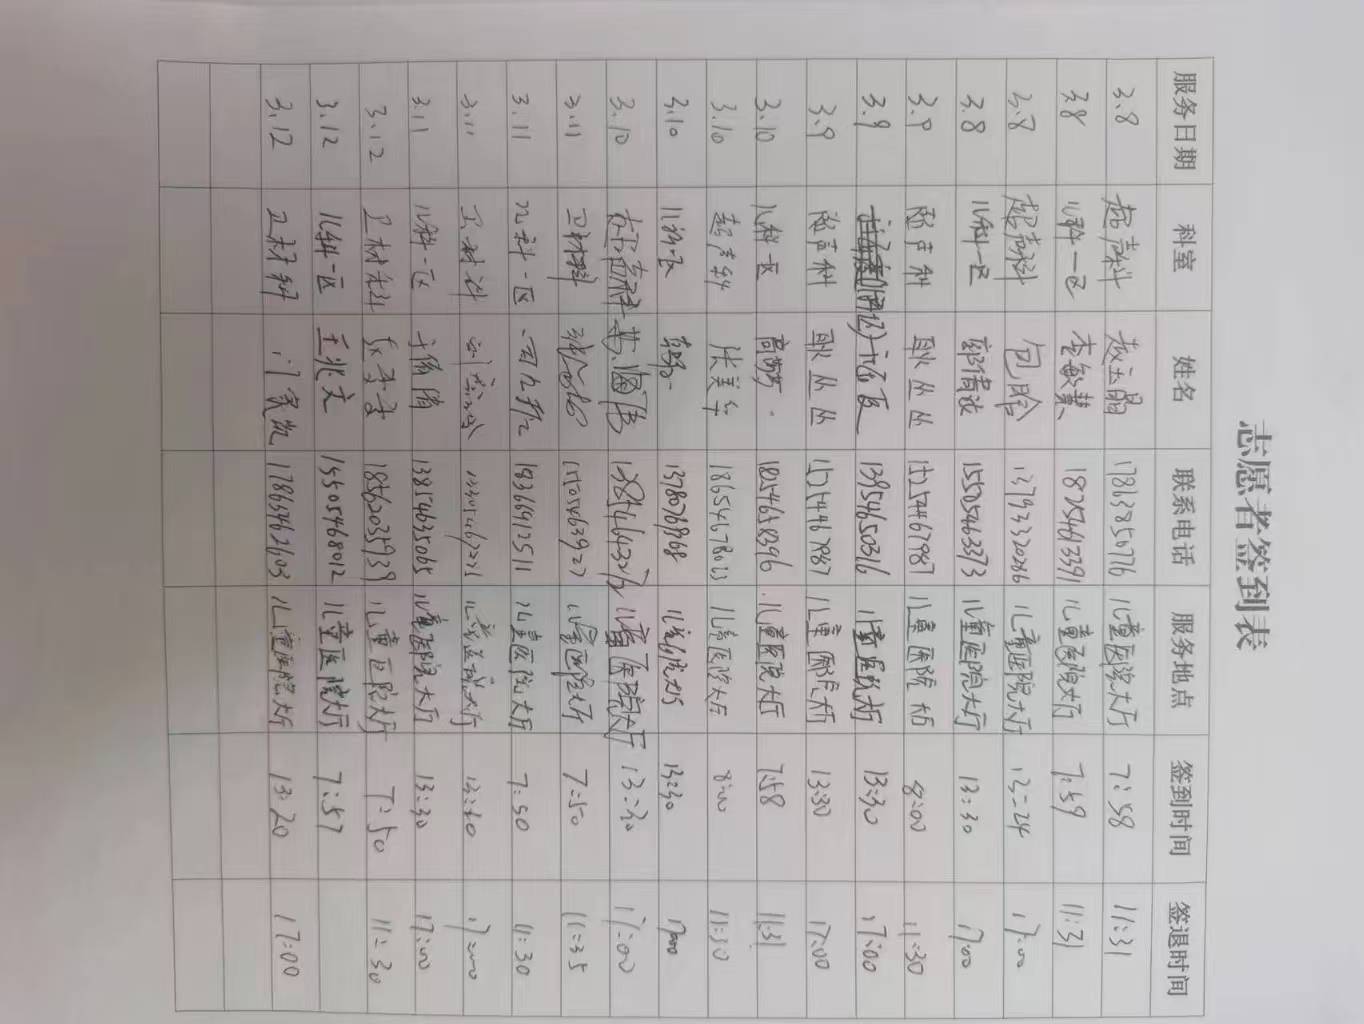 志愿者签到表
服务日期 科室 姓名 联系电话 服务地点 签到时间 签退时间
3.8 超声科 赵玉晶 17863850776 儿童医院大厅 7:58 11:31
3.8 儿科一区 李敏慧 18725463391 儿童医院大厅 7:59 11:31
3.8 超声科 包晗 13793320286 儿童医院大厅 13:24 17:00
3.8 儿科一区 郭倩 15505463373 儿童医院大厅 13:30 17:00
3.9 超声科 耿丛丛 15254467987 儿童医院大厅 8:00 11:30
3.9 13954650316 儿童医院大厅 13:30 17:00
3.9 超声科 耿丛丛 15254467987 儿童医院大厅 13:30 17:00
3.10 儿科一区 18254658396 儿童医院大厅 7:58 11:31
3.10 超声科 张美华 儿童医院大厅 8:00 11:30
3.10 儿科一区 13:30 17:00
3.10 儿童医院大厅 13:30 17:00
3.11 卫材科 15505463927 儿童医院大厅 7:50 11:35
3.11 儿科一区 18366912511 儿童医院大厅 7:50 11:30
3.11 卫材科 儿童医院大厅 13:30 17:00
3.11 儿科一区 13854635065 儿童医院大厅 13:30 17:00
3.12 卫材科 18562035939 儿童医院大厅 7:50 11:30
3.12 儿科一区 王兆文 15505468012 儿童医院大厅 7:57
3.12 卫材科 1786462603 儿童医院大厅 13:20 17:00